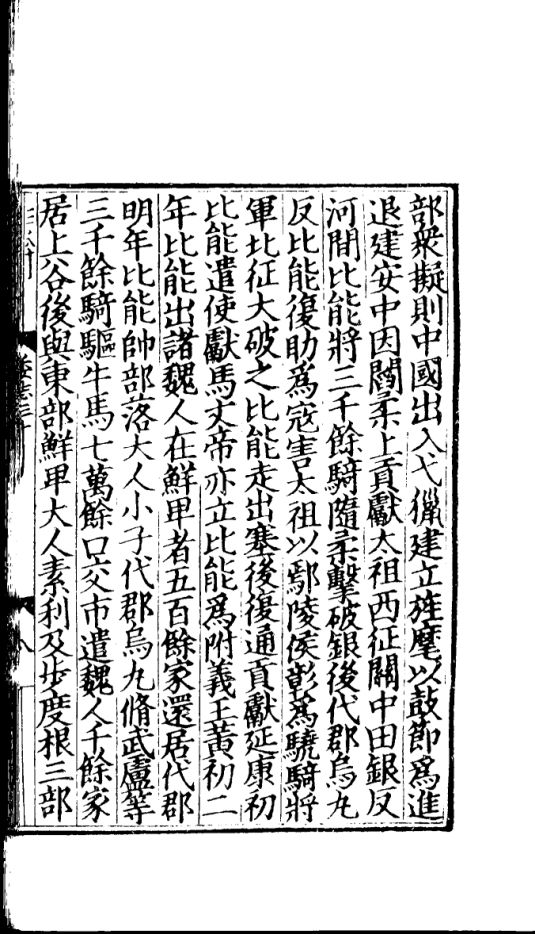 部衆擬則中國出入弋獵建立旌麾以鼓節爲進
退建安中因閻柔上貢獻太祖西征關中田銀反
河間比能將三千餘騎隨柔擊破銀後代郡烏九
反比能復助爲寇害太祖以鄢陵侯彰爲驍騎將
軍北征大破之比能走出塞後復通貢獻延康初
比能遣使獻馬文帝亦立比能爲附義王黃初二
年比能出諸魏人在鮮卑者五百餘家還居代郡
明年比能帥部落大人小子代郡烏九脩武盧等
三千餘騎驅牛馬七萬餘口交市遣魏人千餘家
居上谷後與東部鮮卑大人素利及步度根三部
八